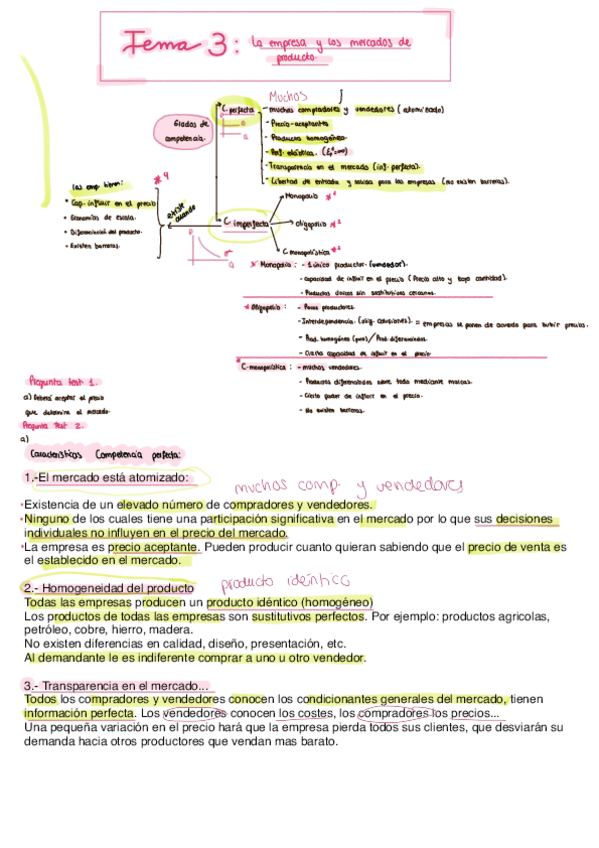 Tema 3: La empresa y los mercados de
producto.
Muchos
Grados de
competencia.
C. perfecta
- muchos compradores y vendedores (atomizado)
- Precio-aceptantes
- Producto homogéneo.
- Transparencia en el mercado (inf. perfecta).
- Libertad de entrada y salida para las empresas (no existen barreras).
Las emp. tienen:
* Cap. influir en el precio
* Economías de escala.
* Diferenciación del producto.
- Existen barreras.
existe
cuando
C. imperfecta
Monopolio
oligopolio
C monopolística
* Monopolio: - 1 único productor. (vendedor).
- capacidad de influir en el precio (Precio alto y baja cantidad).
- Productos únicos sin sustitutivos cercanos.
* Oligopolio: - Pocos productores.
- Interdependencia. (olig. colusiones). = empresas se ponen de acuerdo para subir precios.
- Prod. homogéneo (puro) / Prod. diferenciados.
- Cierta capacidad de influir en el precio
* C-monopolística: - muchos vendedores.
- Productos diferenciados sobre todo mediante marcas.
- Cierto poder de influir en el precio.
- No existen barreras.
Pregunta test 1.
a) Deberá aceptar el precio
que determina el mercado.
Pregunta Test 2.
a)
Características Competencia perfecta:
1.-El mercado está atomizado:
muchos comp. y vendedores
•Existencia de un elevado número de compradores y vendedores.
•Ninguno de los cuales tiene una participación significativa en el mercado por lo que sus decisiones
individuales no influyen en el precio del mercado.
•La empresa es precio aceptante. Pueden producir cuanto quieran sabiendo que el precio de venta es
el establecido en el mercado.
2.- Homogeneidad del producto
producto idéntico
Todas las empresas producen un producto idéntico (homogéneo)
Los productos de todas las empresas son sustitutivos perfectos. Por ejemplo: productos agricolas,
petróleo, cobre, hierro, madera.
No existen diferencias en calidad, diseño, presentación, etc.
Al demandante le es indiferente comprar a uno u otro vendedor.
3.- Transparencia en el mercado...
Todos los compradores y vendedores conocen los condicionantes generales del mercado, tienen
información perfecta. Los vendedores conocen los costes, los compradores los precios...
Una pequeña variación en el precio hará que la empresa pierda todos sus clientes, que desviarán su
demanda hacia otros productores que vendan mas barato.